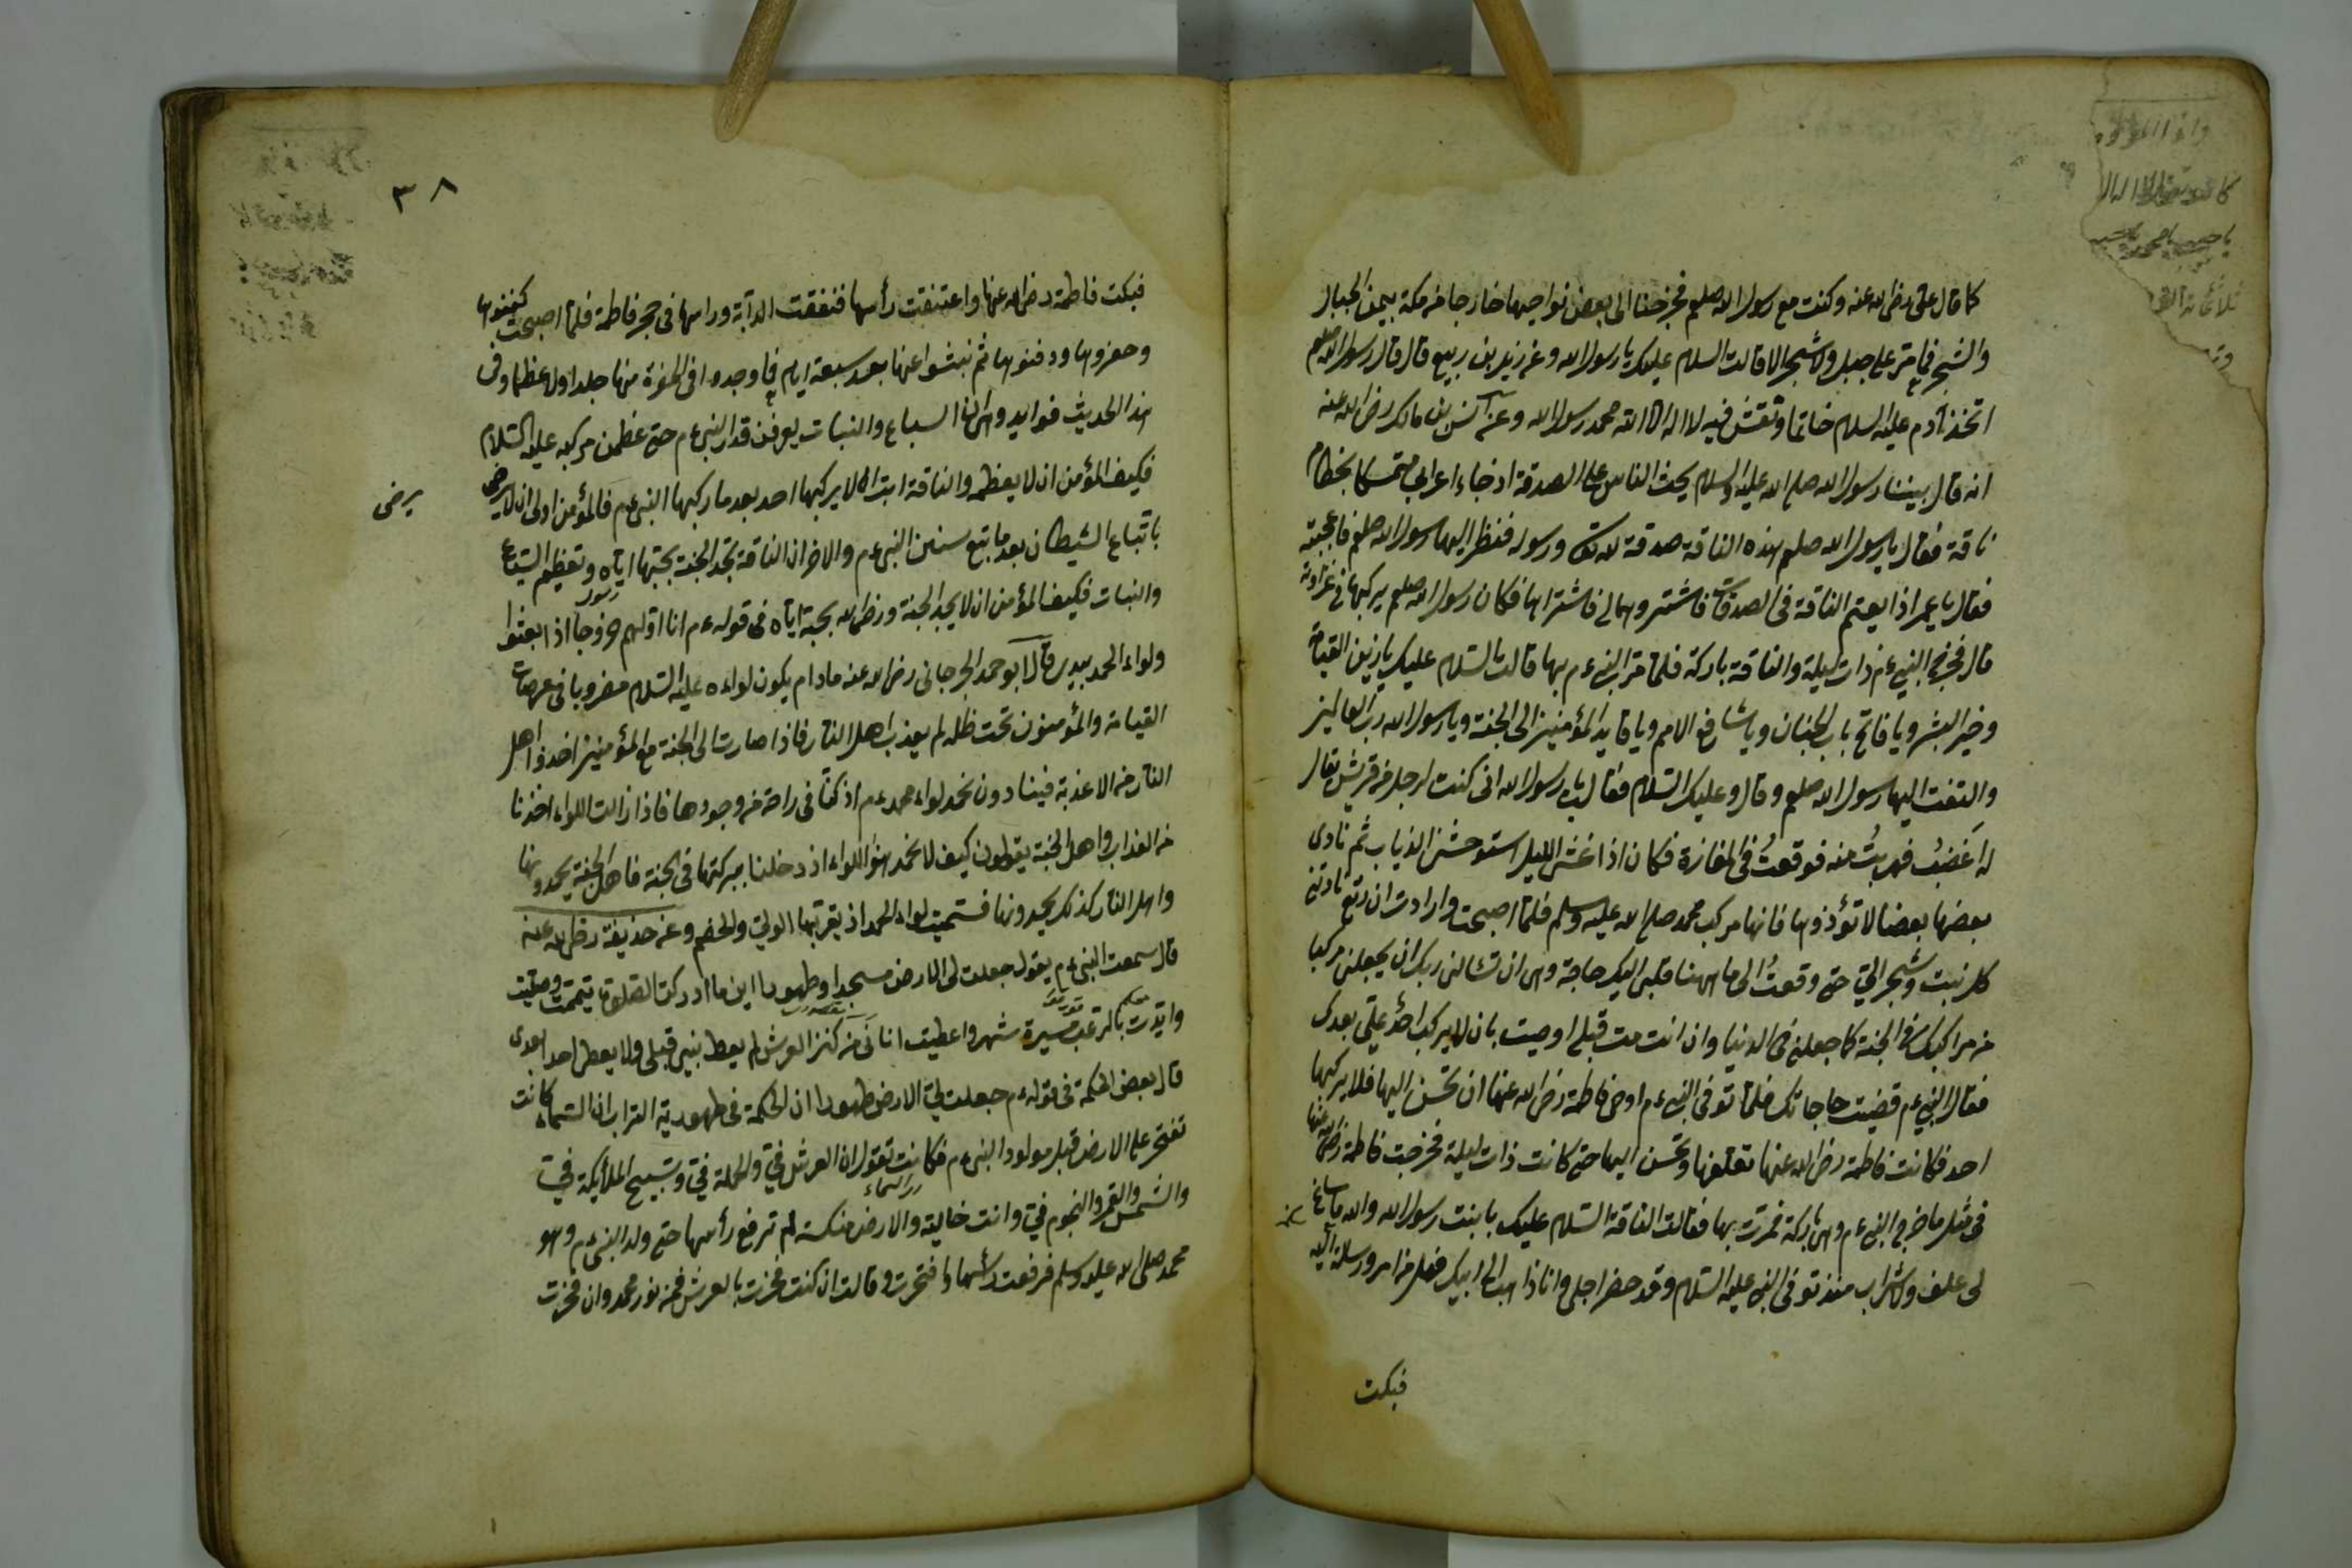 كما قال علي رضي الله عنه وكنت مع رسول الله صلعم فخرجنا الى بعض نواحيها خارجا من مكة بين الجبال
والشجر فما مر على جبل ولا شجر الا قالت السلام عليك يا رسول الله وعن زيد بن ربيع قال قال رسول الله صلعم
اتخذ آدم عليه السلام خاتما ونقش فيه لا اله الا الله محمد رسول الله وعن انس بن مالك رضي الله عنه
انه قال بيننا رسول الله صلى الله عليه وسلم يحث الناس على الصدقة اذ جاء اعرابي متمسكا بخطام
ناقة فقال يا رسول الله صلعم هذه الناقة صدقة لله تعالى ورسوله فنظر اليها رسول الله صلعم فاعجبته
فقال يا عمر اذا بعتم الناقة في الصدقات فاشتروها لي فاشتراها فكان رسول الله صلعم يركبها في غزاوته
قال فخرج النبي ءم ذات ليلة والناقة باركة فلما مر النبي ءم بها قالت السلام عليك يا زين القيامة
وخير البشر ويا فاتح باب الجنان ويا شافع الامم ويا قايد المؤمنين الى الجنة ويا رسول الله رب العالمين
والتفت اليها رسول الله صلعم وقال وعليك السلام فقالت يا رسول الله اني كنت لرجل من قريش يقال
له اغضب فهربت منه فوقعت في المفازة فكان اذا غش الليل استوحش الذياب ثم نادى
بعضها بعضا لا تؤذوها فانها مركب محمد صلى الله عليه وسلم فلما اصبحت وارادت ان رتع نادتني
كل نبت وشجر الي حتى وقعت الى ما ههنا فلي اليك حاجة وهي ان تسال ربك ان يجعلني مركبا
من مراكبك في الجنة كما جعلني في الدنيا وان انت مت قبلي اوصيت بان لا يركب احد علي بعدك
فقال النبي ءم قضيت حاجاتك فلما توفي النبي ءم اوصى فاطمة رضي الله عنها ان تحسن اليها فلا يركبها
احد فكانت فاطمة رضي الله عنها تعلفها وتحسن اليها حتى كانت ذات ليلة فخرجت فاطمة رضي الله عنها
في مثل ما خرج النبي ءم وهي باركة فمرت بها فقالت الناقة السلام عليك يا بنت رسول الله والله ما ساغ
لي علف ولا شراب منذ توفي النبي عليه السلام وقد حضر اجلي وانا ذاهب الى ابيك فهل من امر ورسالة اليه
فبكت
٣٨
فبكت فاطمة رضي الله عنها واعتنقت رأسها فنفقت الدآبة وراسها في حجر فاطمة فلما اصبحت كفنوها
وحفروها ودفنوها ثم نبشوا عنها بعد سبعة ايام فما وجدوا في الحفرة منها جلدا ولا عظما وفي
هذا الحديث فوايد وهي ان السباع والنبات يعرفن قدر النبي ءم حتى عظمن مركبه عليه السلام
فكيف المؤمن ان لا يعظمه والناقة ابت ان لا يركبها احد بعد ما ركبها النبي ءم فالمؤمن اولى ان لا يرضى
يرضى
باتباع الشيطان بعد ما تبع سنن النبي ءم والاخر ان الناقة تجد الجنة بحبتها اياه وتعظيم السباع
والنبات فكيف المؤمن ان لا يجد الجنة ورضى الله بحبة اياه في قوله ءم انا اولهم خروجا اذا بعثوا
ولواء الحمد بيدي قال ابو حمد الجرجاني رضي الله عنه ما دام يكون لواءه عليه السلام مضروبا في عرصات
القيامة والمؤمنون تحت ظله لم يعذب اهل النار فاذا صارت الى الجنة مع المؤمنين اخذوا اهل
النار من الاعذبة فينادون نحمد لواء محمد ءم اذ كنا في راحة من وجودها فاذا زالت اللواء اخذنا
من العذاب واهل الجنة يقولون كيف لا نحمد هذا اللواء اذ دخلنا ببركتها في الجنة فاهل الجنة يحمدونها
واهل النار كذلك يحمدونها فسميت لواء الحمد اذ يقر بها الولي والخصم وعن حذيفة رضي الله عنه
قال سمعت النبي ءم يقول جعلت لي الارض مسجدا وطهورا اين ما ادركت الصلوة تيممت وصليت
وايدت بالرعب مسيرة شهر واعطيت انا من كنز العرش لم يعط بنبي قبلي ولا يعطى احد بعدي
قال بعض الحكمة في قوله ءم جعلت لي الارض طهورا ان الحكمة في طهورية التراب ان السماء كانت
تفتخر على الارض قبل مولود النبي ءم فكانت تقول ان العرش في والحملة في وتسبيح الملايكة في
والشمس والقمر والنجوم في وانت خالية والارض منكسة لم ترفع رأسها حتى ولد النبي ءم وهو
محمد صلى الله عليه وسلم فرفعت رأسها وافتخرت وقالت ان كنت فخرت بالعرش فمن نور محمد وان فخرت